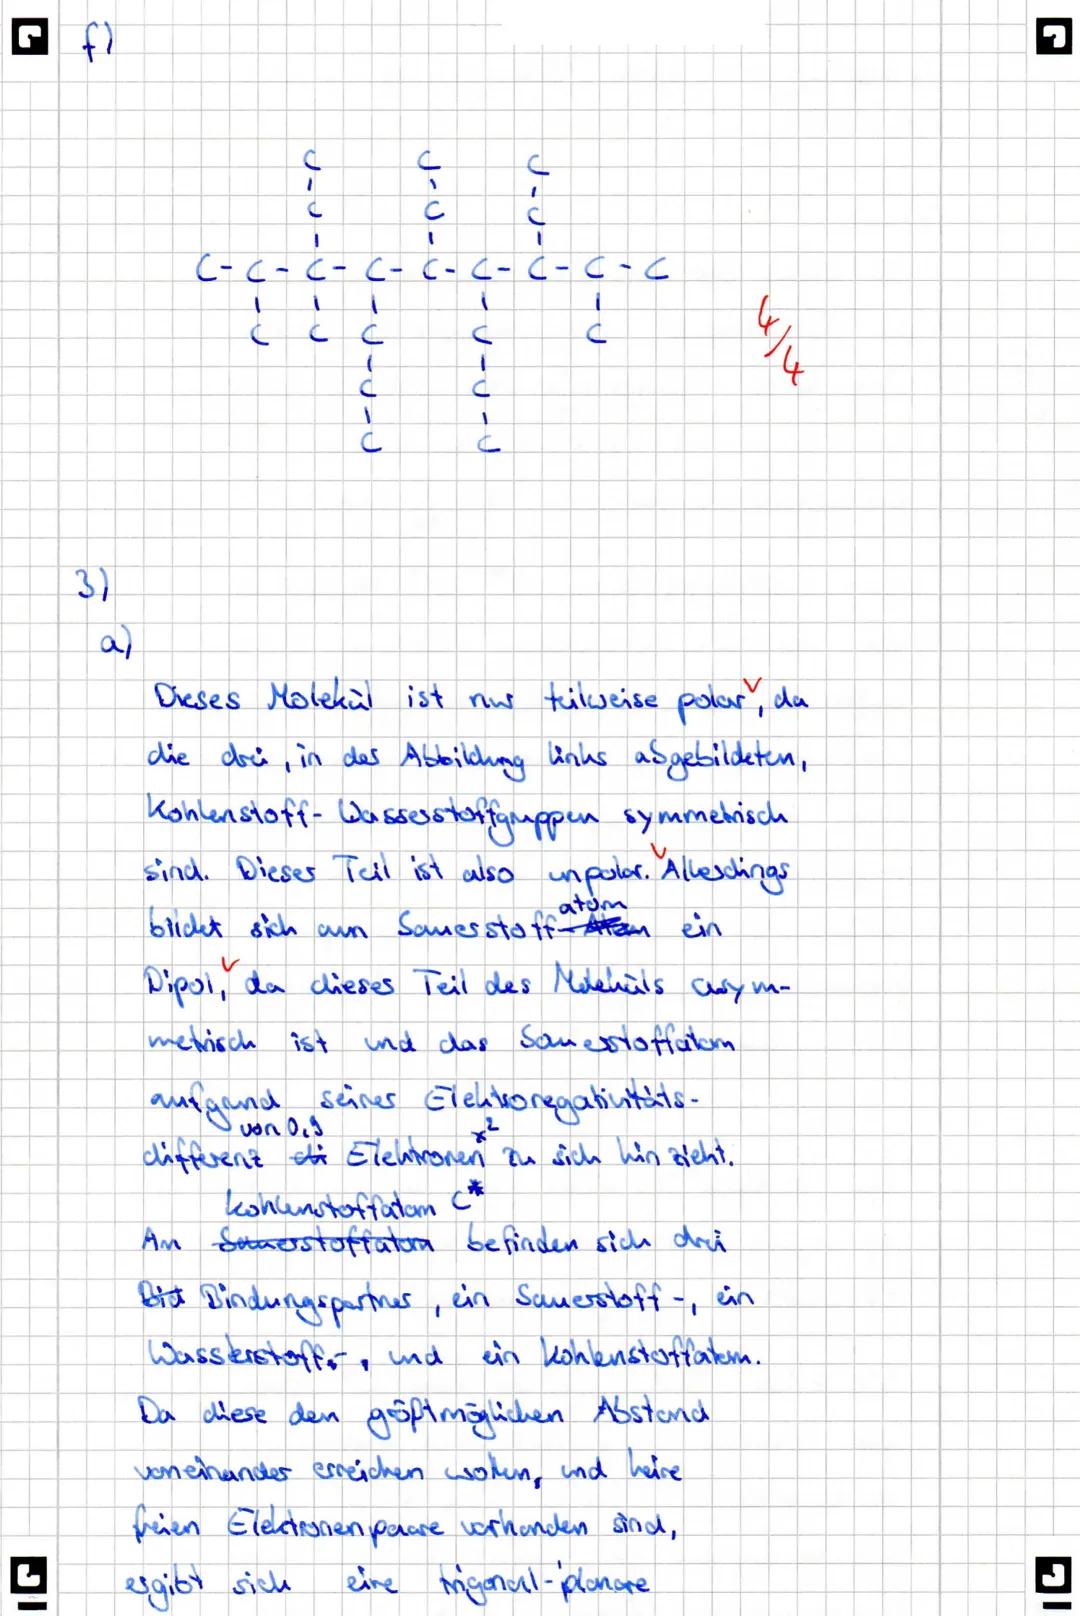 f)
C C C
C C C
C-C-C-C-C-C-C-C-C
C C C C C
C C
C C
4/4
3)
a)
Dieses Molekül ist nur teilweise polar, da
die drei, in der Abbildung links abgebildeten,
Kohlenstoff-Wasserstoffgruppen symmetrisch
sind. Dieser Teil ist also unpolar. Allerdings
bildet sich am Sauerstoffatom ein
Dipol, da dieses Teil des Moleküls asym-
metrisch ist und das Sauerstoffatom
aufgrund seiner Elektronegativitäts-
differenz von 0,9 Elektronen x² zu sich hin zieht.
Kohlenstoffatom C*
An Sauerstoffatom befinden sich drei
Bid Bindungspartner, ein Sauerstoff-, ein
Wasserstoff-, und ein Kohlenstoffatom.
Da diese den größtmöglichen Abstand
voneinander erreichen wollen, und keine
freien Elektronenpaare vorhanden sind,
ergibt sich eine trigonal-planare